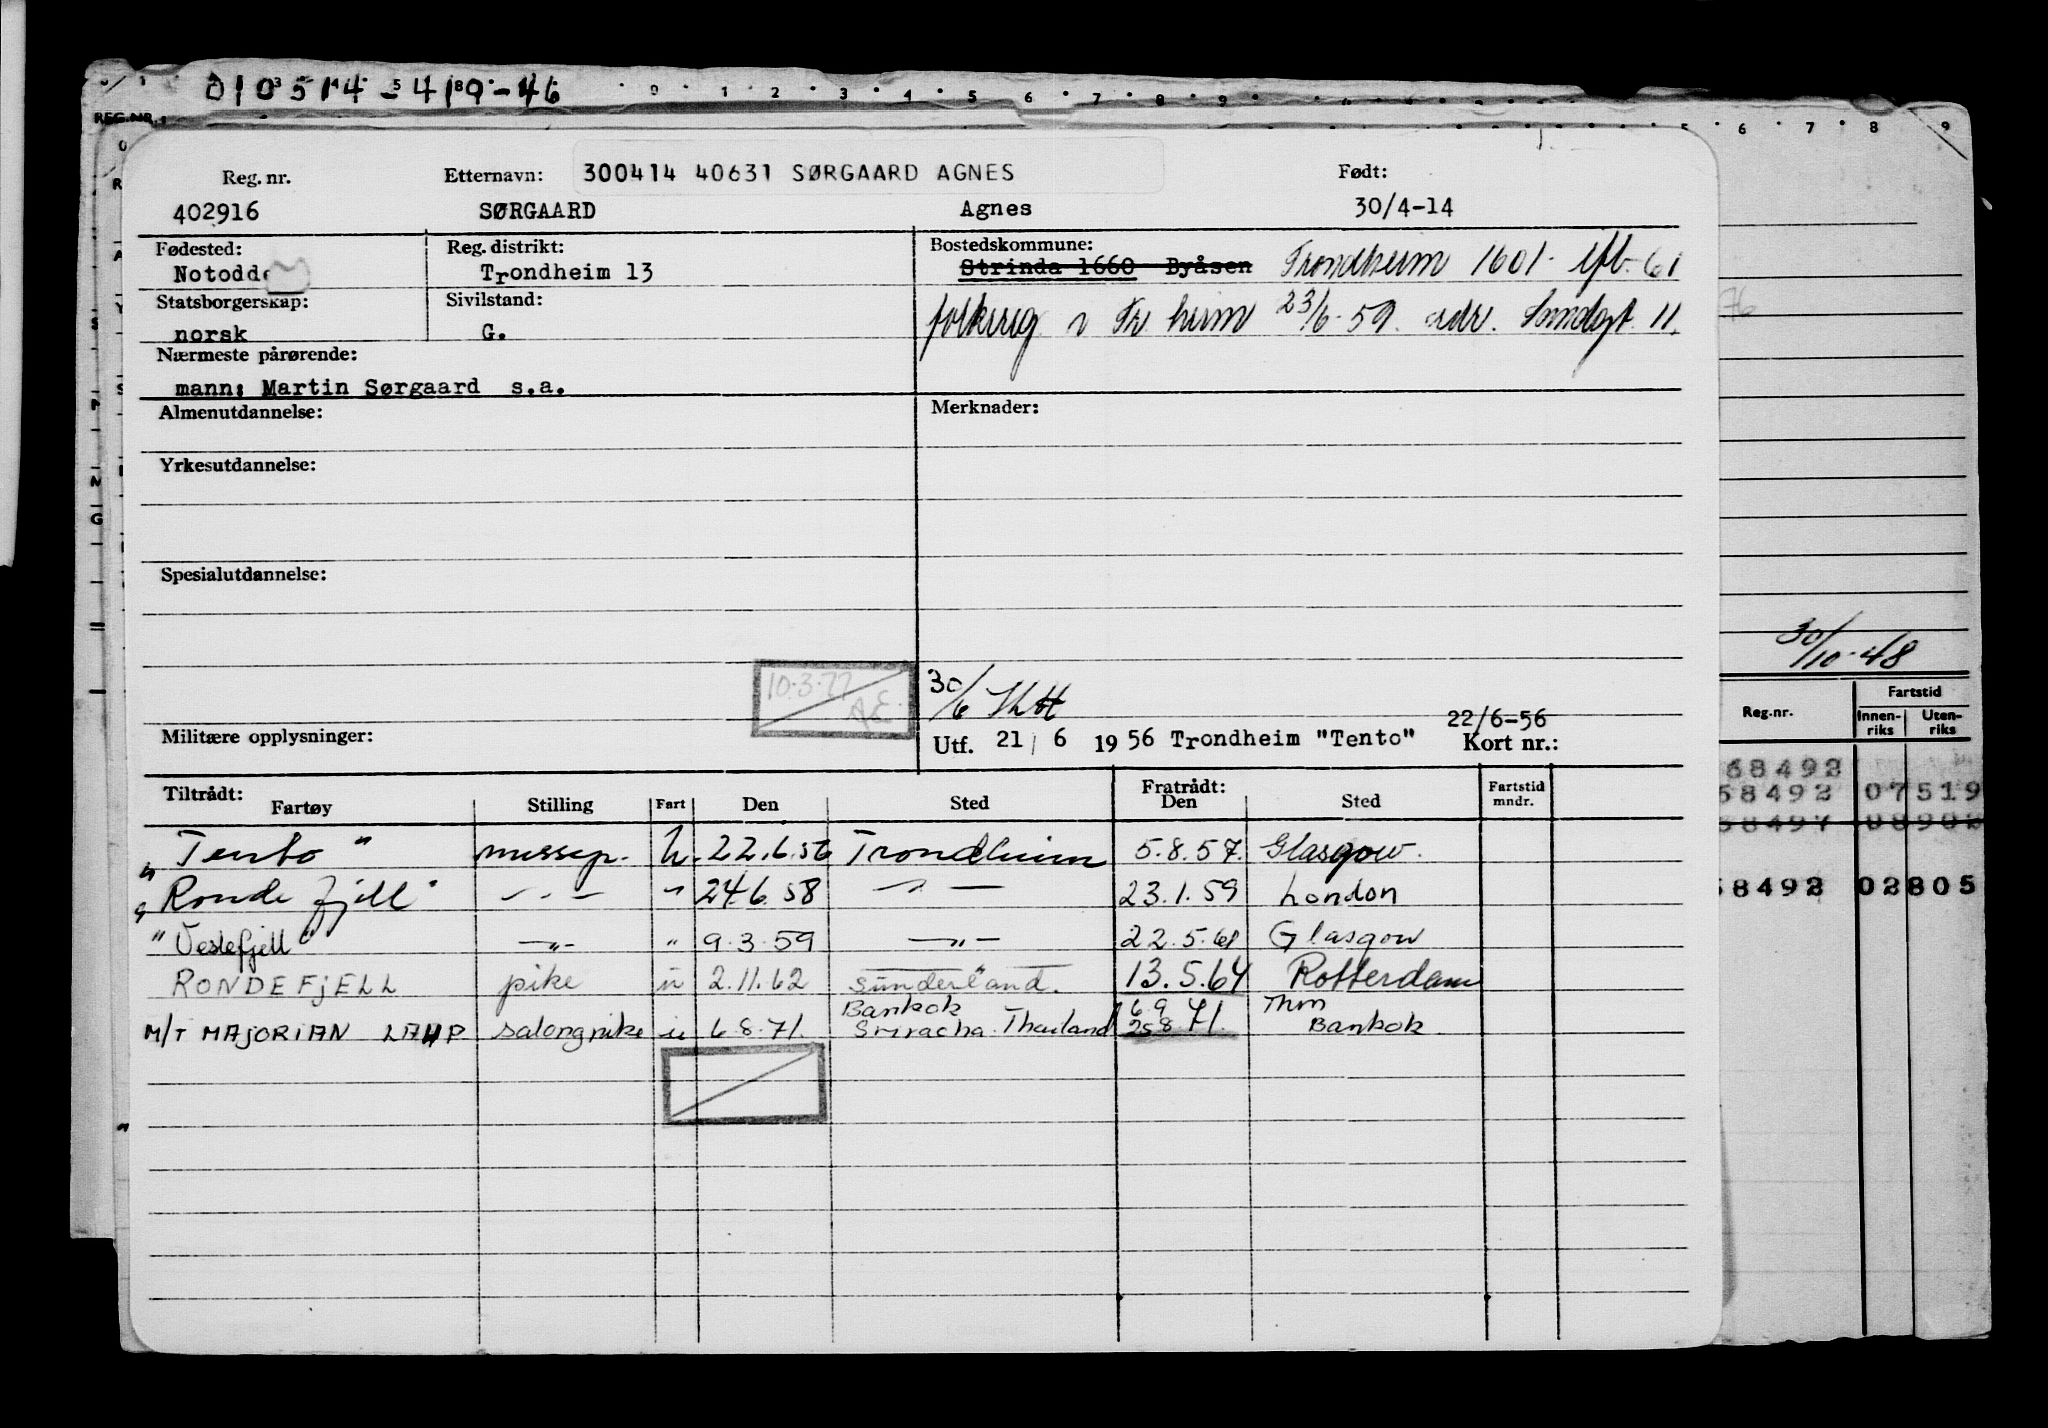 010514-419-46
0 1 2 3 4 5 6 7 8 9
REG.NR.
5 6 7 8 9
Reg. nr. Etternavn: 300414 40631 SØRGAARD AGNES Født:
402916 SØRGAARD Agnes 30/4-14
Fødested: Reg. distrikt: Bostedskommune:
Notodd Trondheim 13 Strinda 1660 Byåsen Trondheim 1601. 61
Statsborgerskap: Sivilstand:
folkereg i Tr heim 23/6-59 adr. 11.
norsk G.
Nærmeste pårørende:
mann: Martin Sørgaard s.a.
Almenutdannelse: Merknader:
Yrkesutdannelse:
Spesialutdannelse:
30/10-48
10.3.77
AE.
30/6
Militære opplysninger: Utf. 21/6 1956 Trondheim "Tento" 22/6-56 Kort nr.:
Reg.nr. Fartstid
Innenriks Utenriks
Tiltrådt: Fratrådt:
Fartøy Stilling Fart Den Sted Den Sted Fartstid mndr.
68492
58492 07519
"Tento" messep. u. 22.6.56 Trondheim 5.8.57. Glasgow.
"Rondefjell" -"- " 24.6.58 -"- 23.1.59 London
58492 02805
"Veslefjell" -"- " 9.3.59 -"- 22.5.61 Glasgow
RONDEFJELL pike u 2.11.62 Sunderland. 13.5.64 Rotterdam
Bankok 6.9 Thm
M/T MAJORIAN LAHP salongpike u 6.8.71. Sriracha Thailand 25.8 71. Bankok